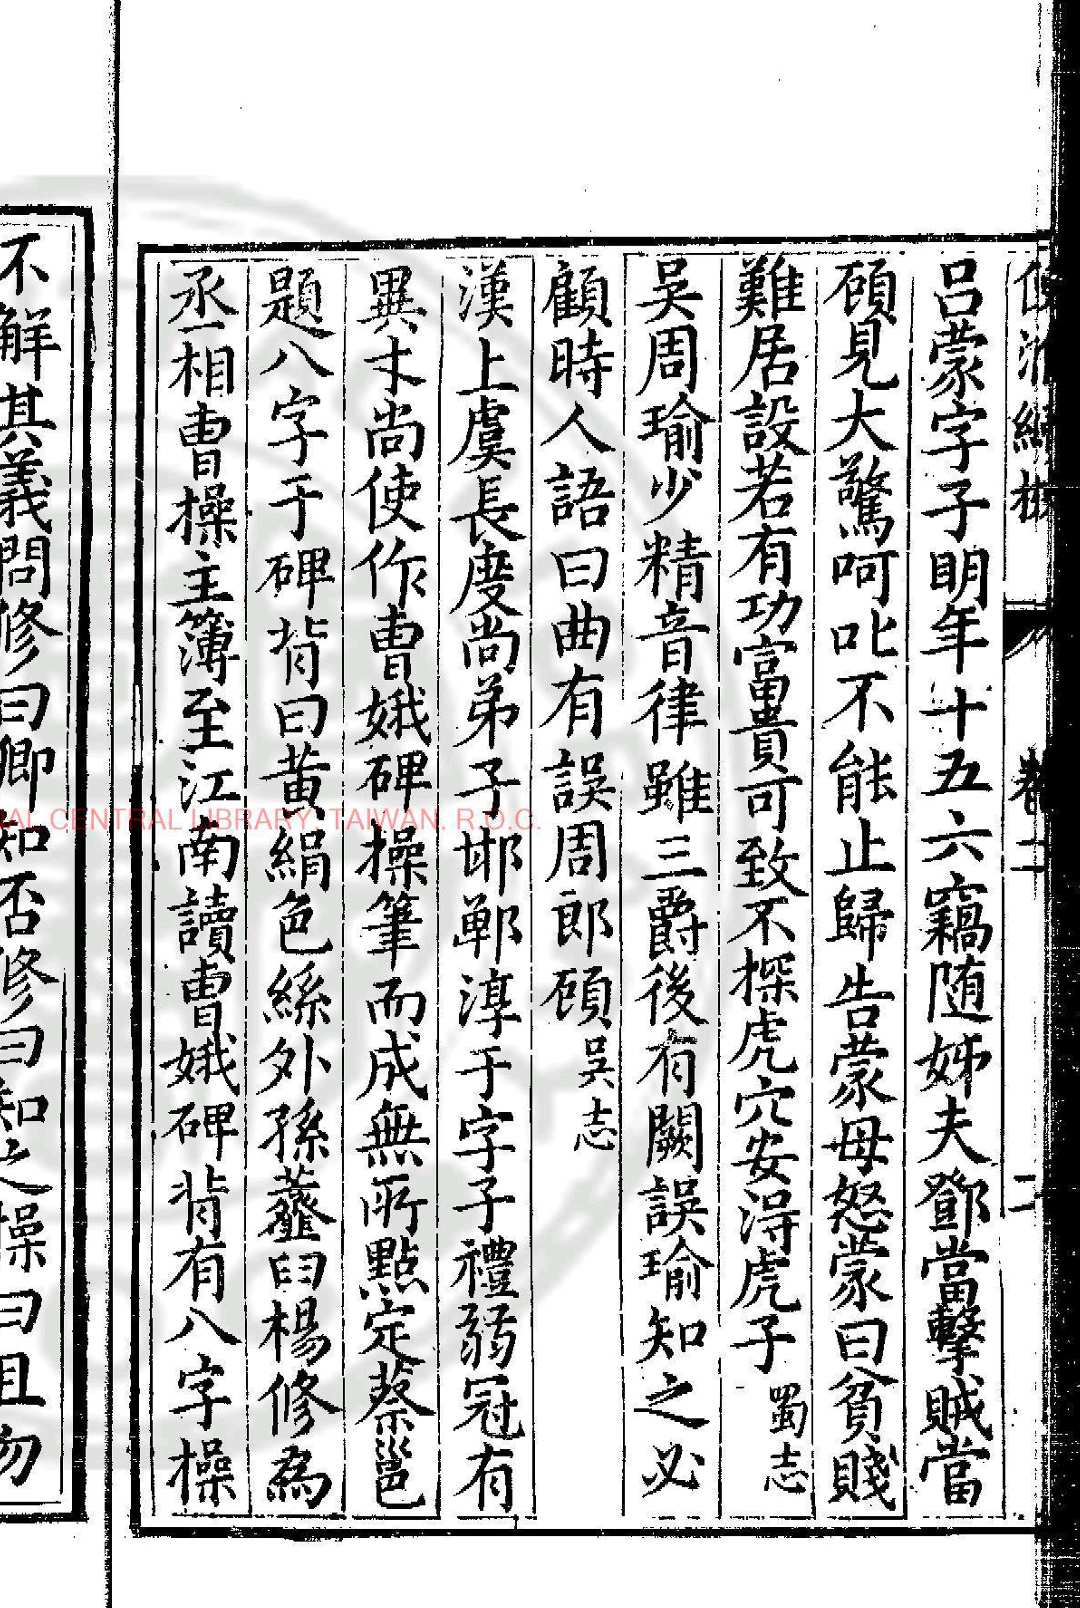 呂蒙字子明年十五六竊随姊夫鄧當擊賊當
顧見大驚呵叱不能止歸告蒙母怒蒙曰貧賤
難居設若有功富貴可致不探虎穴安淂虎子蜀志
吴周瑜少精音律雖三爵後有闕誤瑜知之必
顧時人語曰曲有誤周郎顧吴志
漢上虞長度尚弟子邯鄲淳于字子禮弱冠有
異才尚使作曹娥碑操筆而成無所點定蔡邕
題八字于碑背曰黄絹色絲外孫虀臼楊修為
丞相曹操主簿至江南讀曹娥碑背有八字操
不解其義問修曰卿知否修曰知之操曰且勿
卷二
二
NAL CENTRAL LIBRARY, TAIWAN, R.O.C.